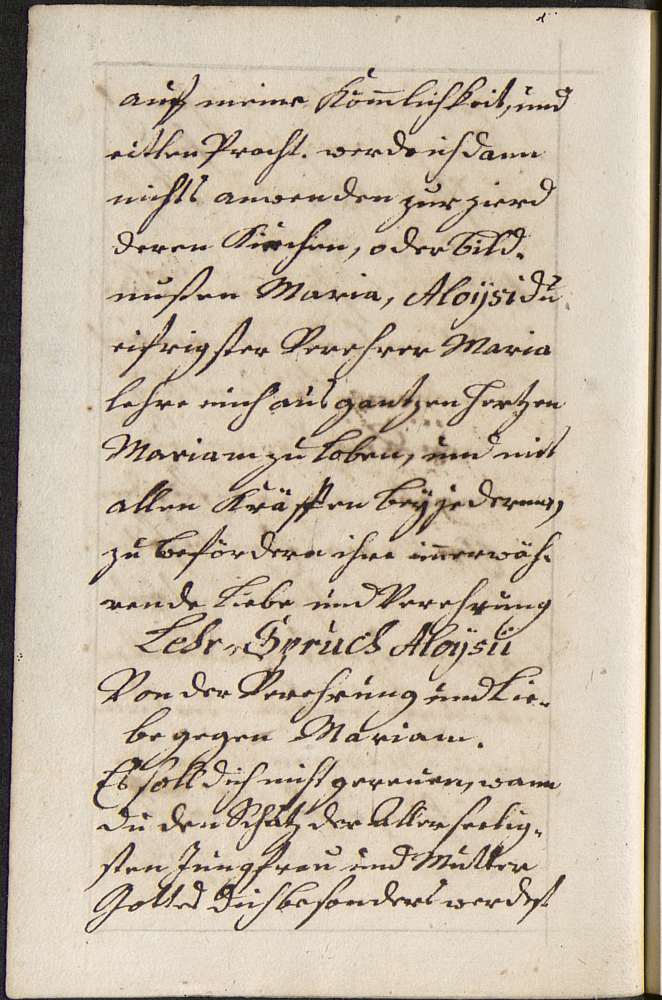 auf meine Kom̄lichkeit, und
eitlen Pracht. werde ich dann
nichts anwenden zur zierd
deren Kirchen, oder bild-
nußen Maria, Aloÿsi du
eifrigster Verehrer Maria
lehre mich aus gantzen Hertzen
Mariam zu loben, und mit
allen Kräfften beÿ jederman
zu beförderen ihre im̄erwäh-
rende Liebe und Verehrung
Lehr-Spruch Aloÿsii
Von der Verehrung und Lie-
be gegen Mariam.
Es soll dich nicht gereuen, wann
du den Schutz der Allerseelig-
sten Jungfrau und Mutter
Gottes dich besonders werdest